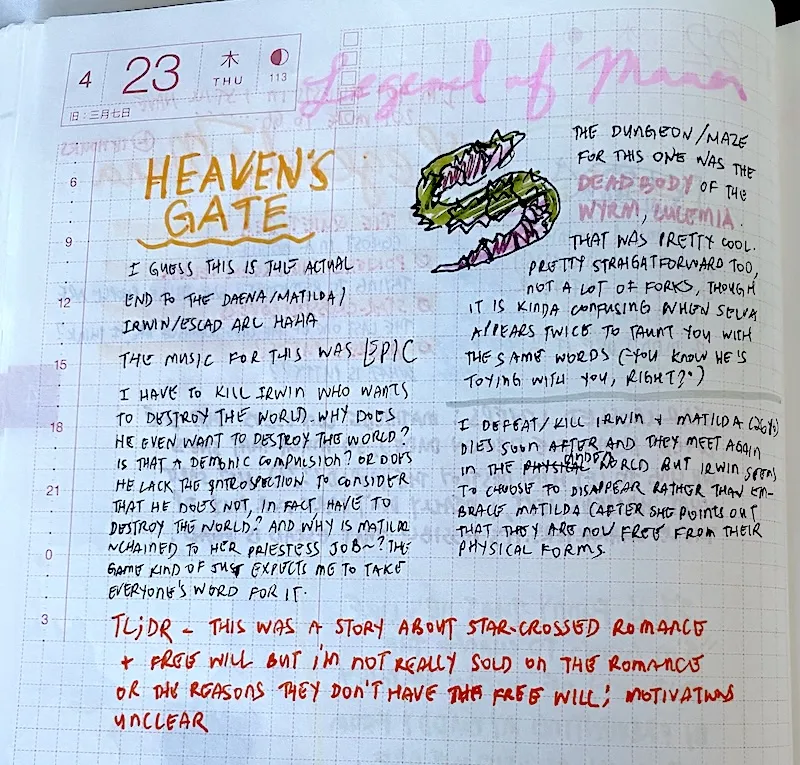 4 23 木 THU 113
旧:三月七日
Legend of Mana
6
9
12
15
18
21
0
3
HEAVEN'S
GATE
I GUESS THIS IS THE ACTUAL
END TO THE DAENA/MATILDA/
IRWIN/ESCAD ARC HAHA
THE MUSIC FOR THIS WAS EPIC
I HAVE TO KILL IRWIN WHO WANTS
TO DESTROY THE WORLD. WHY DOES
HE EVEN WANT TO DESTROY THE WORLD?
IS THAT A DEMONIC COMPULSION? OR DOES
HE LACK THE INTROSPECTION TO CONSIDER
THAT HE DOES NOT, IN FACT, HAVE TO
DESTROY THE WORLD? AND WHY IS MATILDA
NCHAINED TO HER PRIESTESS JOB~? THE
GAME KIND OF JUST EXPECTS ME TO TAKE
EVERYONE'S WORD FOR IT.
THE DUNGEON/MAZE
FOR THIS ONE WAS THE
DEAD BODY OF THE
WYRM, LUCEMIA.
THAT WAS PRETTY COOL.
PRETTY STRAIGATFORWARD TOO,
NOT A LOT OF FORKS, THOUGH
IT IS KINDA CONFUSING WHEN SELVA
APPEARS TWICE TO TAUNT YOU WITH
THE SAME WORDS ("YOU KNOW HE'S
TOYING WITH YOU, RIGHT?")
I DEFEAT/KILL IRWIN + MATILDA (26yo)
DIES SOON AFTER AND THEY MEET AGAIN
IN THE PHYSICAL UNDER WORLD BUT IRWIN SEEMS
TO CHOOSE TO DISAPPEAR RATHER THAN EM-
BRACE MATILDA (AFTER SHE POINTS OUT
THAT THEY ARE NOW FREE FROM THEIR
PHYSICAL FORMS.
TL;DR - THIS WAS A STORY ABOUT STAR-CROSSED ROMANCE
+ FREE WILL BUT I'M NOT REALLY SOLD ON THE ROMANCE
OR THE REASONS THEY DON'T HAVE FREE WILL; MOTIVATIONS
UNCLEAR